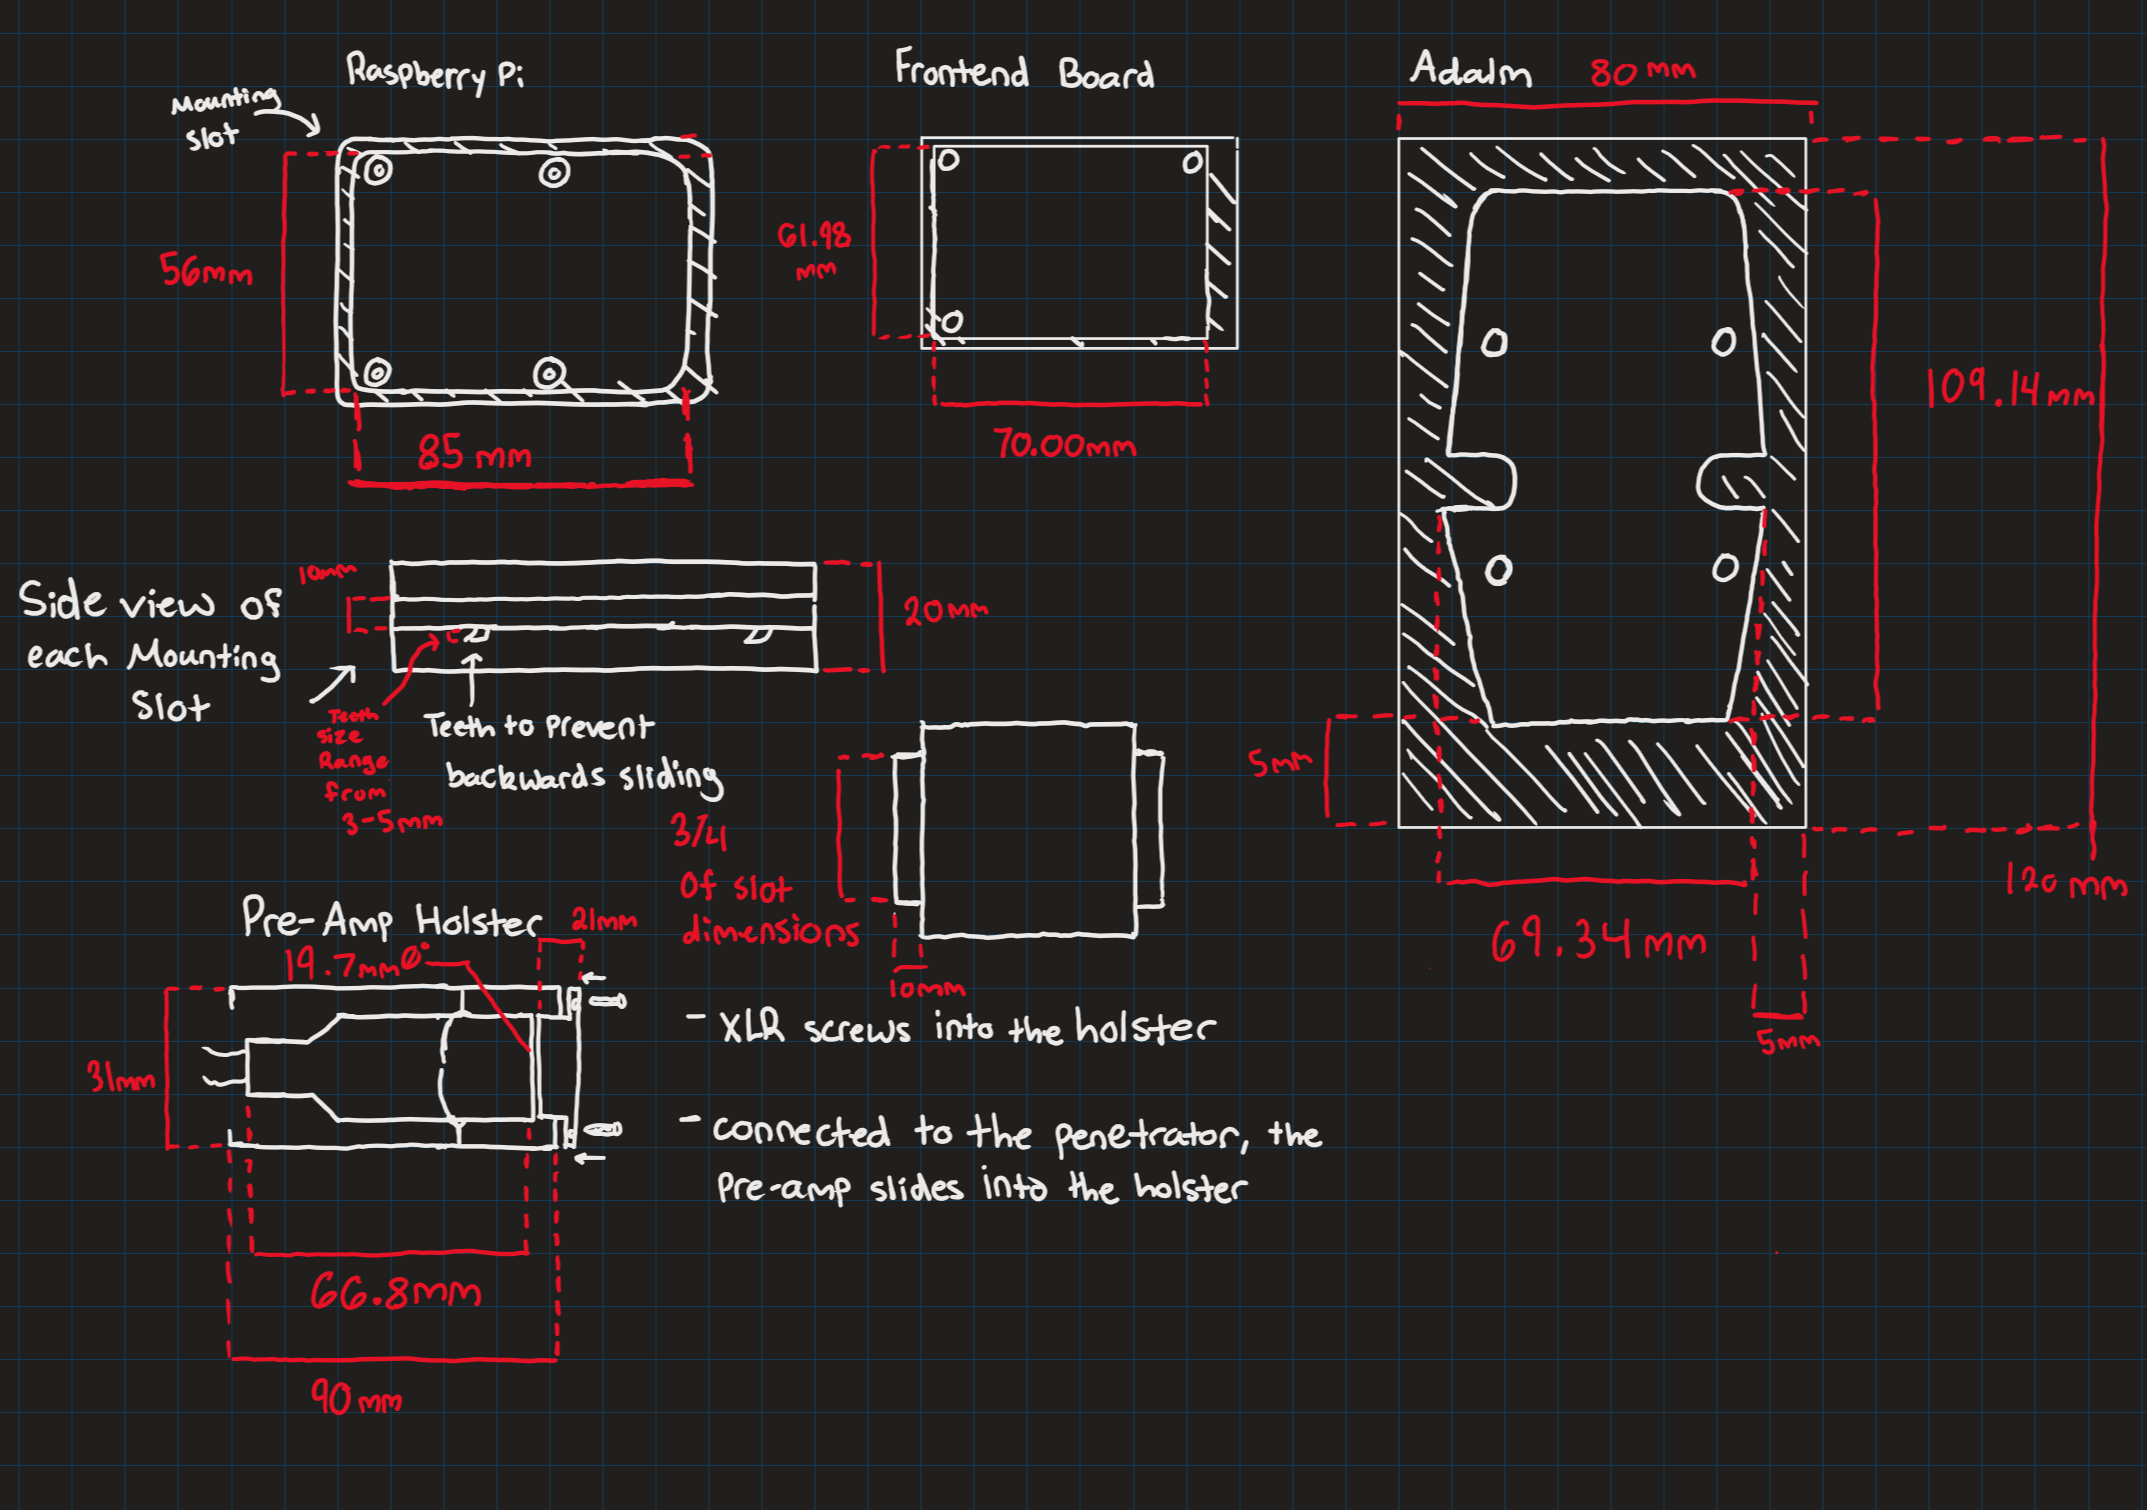 Raspberry Pi
Mounting
Slot
56mm
85 mm
Frontend Board
61.98
mm
70.00mm
Adalm
80 mm
109.14mm
120 mm
5mm
69.34mm
5mm
Side view of
each Mounting
Slot
10mm
20mm
Teeth
size
Range
from
3-5mm
Teeth to prevent
backwards sliding
3/4
Of slot
dimensions
10mm
Pre-Amp Holster
19.7mmØ
21mm
31mm
66.8mm
90mm
- XLR screws into the holster
- connected to the penetrator, the
Pre-amp slides into the holster